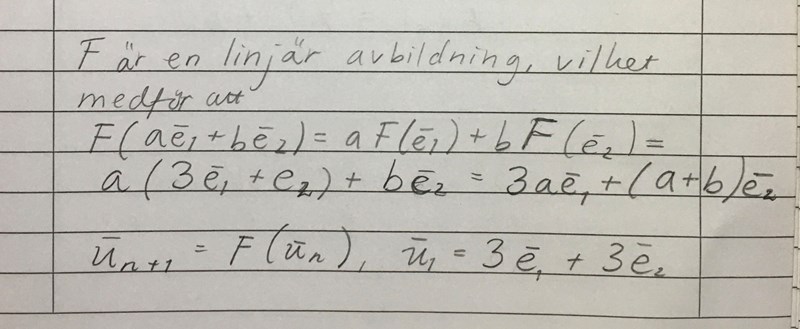 F är en linjär avbildning, vilket
medför att
F(aē₁+bē₂)= aF(ē₁)+bF(ē₂)=
a(3ē₁+e₂)+ bē₂ = 3aē₁+(a+b)ē₂
ūₙ₊₁ = F(ūₙ), ū₁ = 3ē₁ + 3ē₂